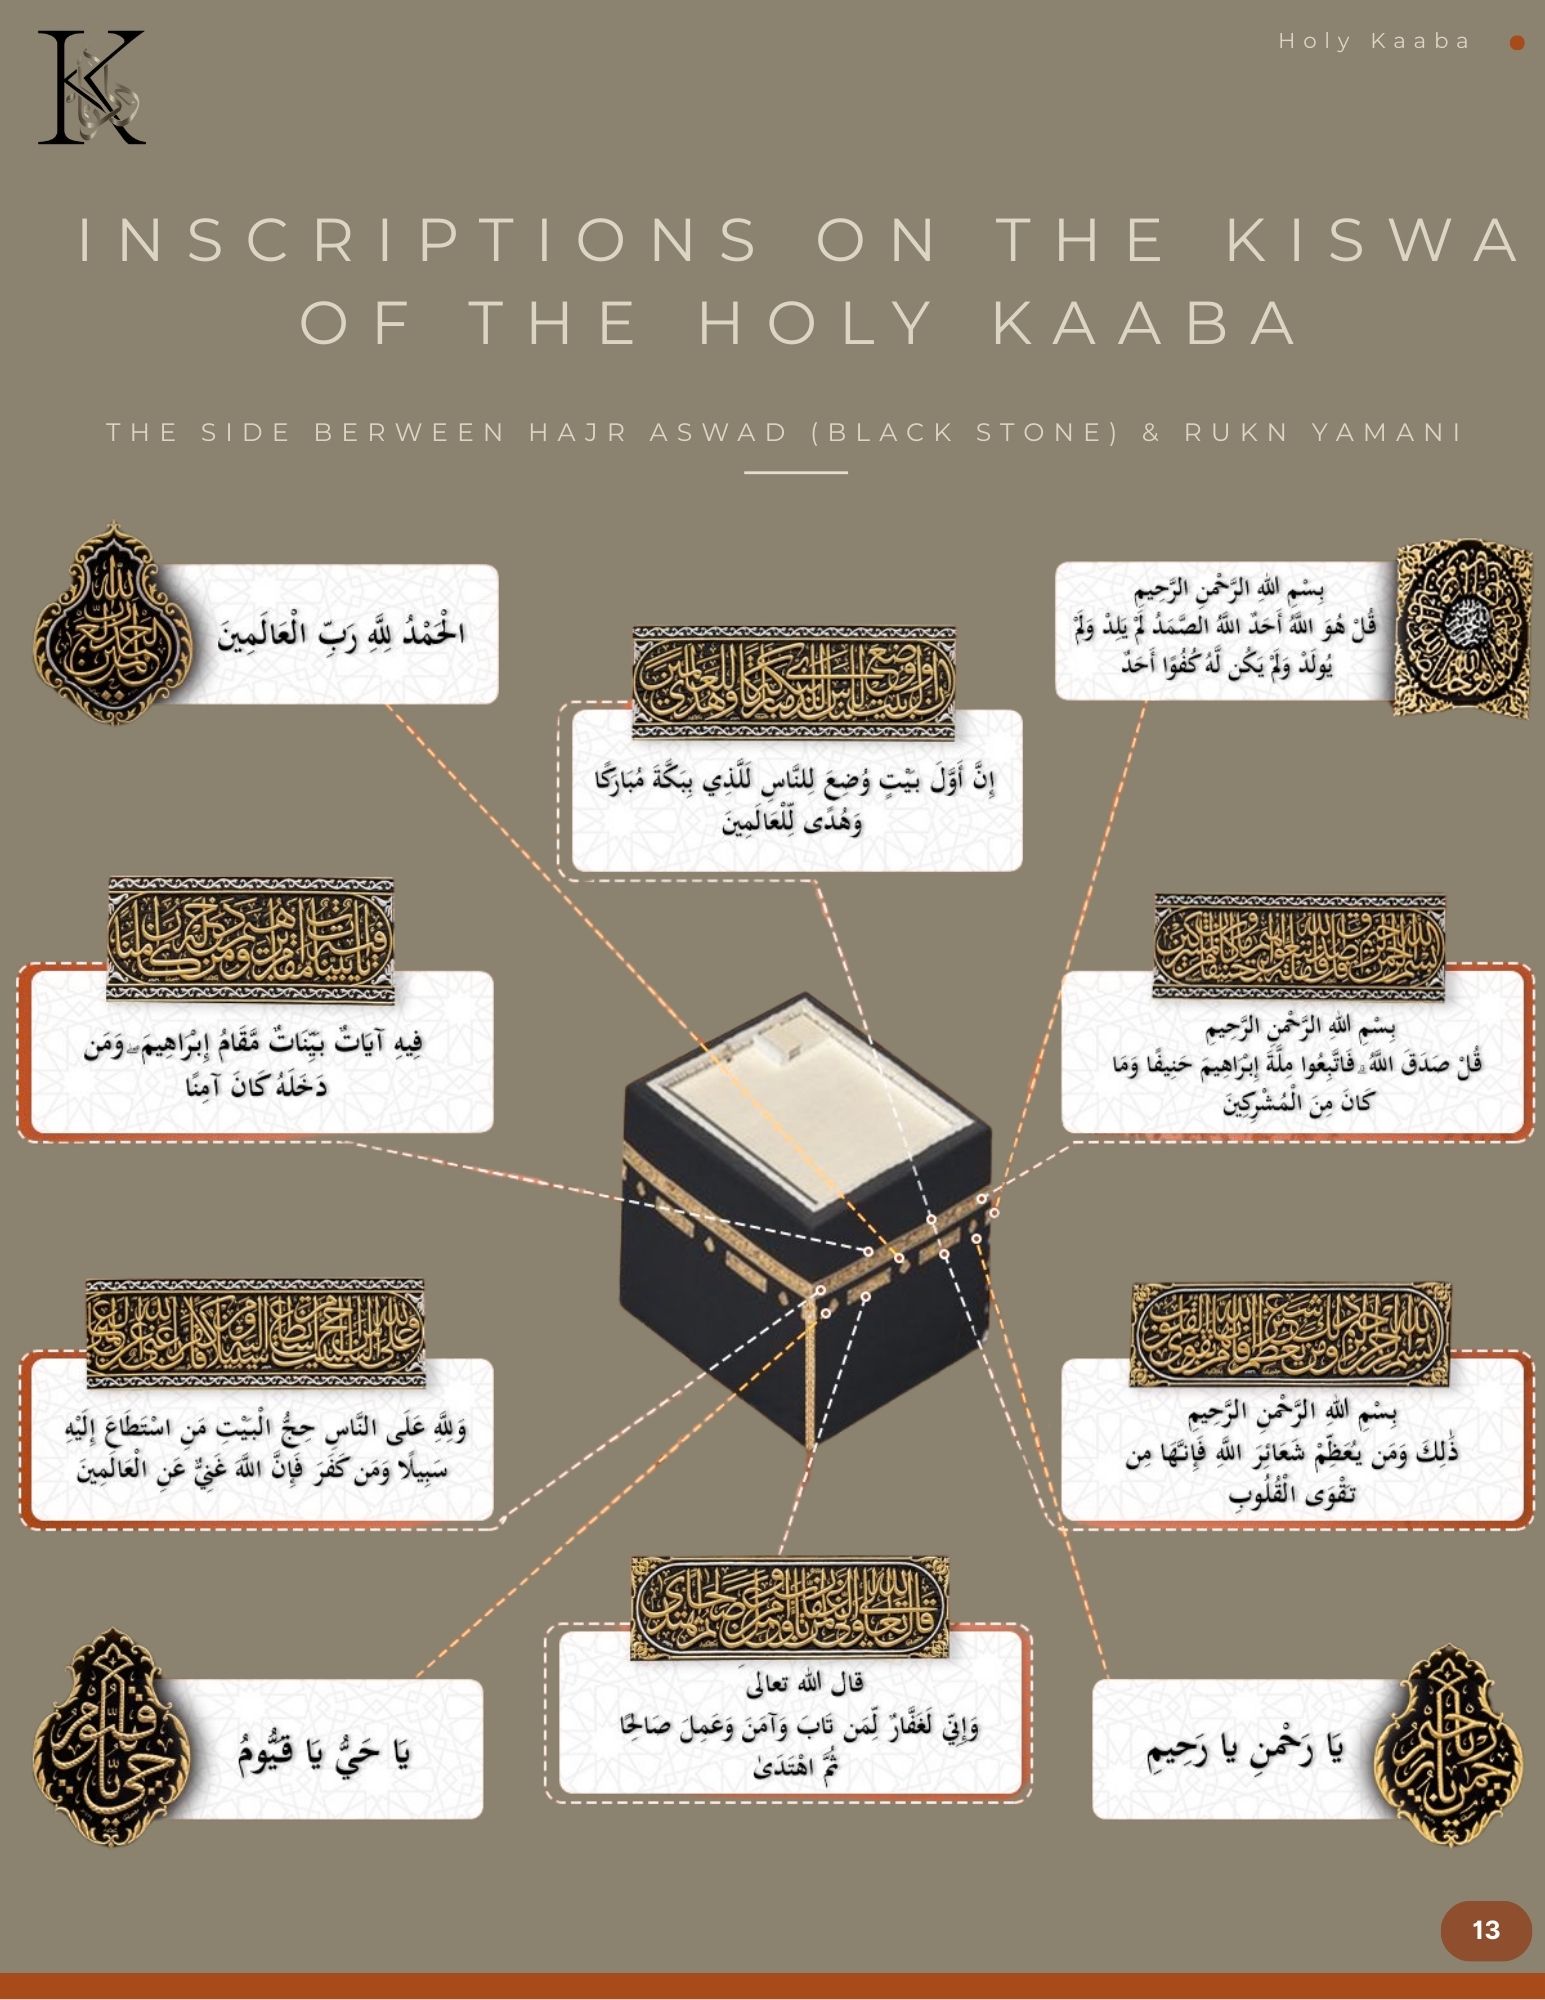 Holy Kaaba
INSCRIPTIONS ON THE KISWA
OF THE HOLY KAABA
THE SIDE BERWEEN HAJR ASWAD (BLACK STONE) & RUKN YAMANI
الْحَمْدُ لِلَّهِ رَبِّ الْعَالَمِينَ
إِنَّ أَوَّلَ بَيْتٍ وُضِعَ لِلنَّاسِ لَلَّذِي بِبَكَّةَ مُبَارَكًا
وَهُدًى لِّلْعَالَمِينَ
بِسْمِ اللهِ الرَّحْمنِ الرَّحِيمِ
قُلْ هُوَ اللَّهُ أَحَدٌ اللَّهُ الصَّمَدُ لَمْ يَلِدْ وَلَمْ
يُولَدْ وَلَمْ يَكُن لَّهُ كُفُوًا أَحَدٌ
فِيهِ آيَاتٌ بَيِّنَاتٌ مَّقَامُ إِبْرَاهِيمَ ۖ وَمَن
دَخَلَهُ كَانَ آمِنًا
بِسْمِ اللهِ الرَّحْمنِ الرَّحِيمِ
قُلْ صَدَقَ اللَّهُ ۗ فَاتَّبِعُوا مِلَّةَ إِبْرَاهِيمَ حَنِيفًا وَمَا
كَانَ مِنَ الْمُشْرِكِينَ
وَلِلَّهِ عَلَى النَّاسِ حِجُّ الْبَيْتِ مَنِ اسْتَطَاعَ إِلَيْهِ
سَبِيلًا وَمَن كَفَرَ فَإِنَّ اللَّهَ غَنِيٌّ عَنِ الْعَالَمِينَ
بِسْمِ اللهِ الرَّحْمنِ الرَّحِيمِ
ذَٰلِكَ وَمَن يُعَظِّمْ شَعَائِرَ اللَّهِ فَإِنَّهَا مِن
تَقْوَى الْقُلُوبِ
يَا حَيُّ يَا قَيُّومُ
قال الله تعالى
وَإِنِّي لَغَفَّارٌ لِّمَن تَابَ وَآمَنَ وَعَمِلَ صَالِحًا
ثُمَّ اهْتَدَىٰ
يَا رَحْمنِ يا رَحِيمِ
13